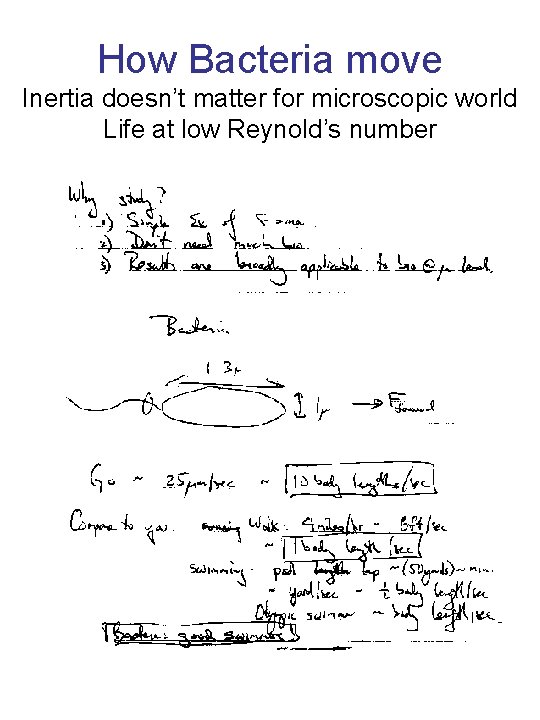 How Bacteria move
Inertia doesn't matter for microscopic world
Life at low Reynold's number
Why study?
1) Simple Ex of F=ma
2) Don't need much bio
3) Results are broadly applicable to bio @ μ level.
Bacteria
1 3μ
1μ → F forward
Go ~ 25μm/sec ~ 10 body lengths/sec
Compare to you. Walk: 4miles/hr ~ 6ft/sec
~ 1 body length/sec
swimming: pool lap ~(50yards)~min.
~ yard/sec ~ ½ body length/sec
Olympic swimmer ~ body length/sec
Bacteria good swimmers